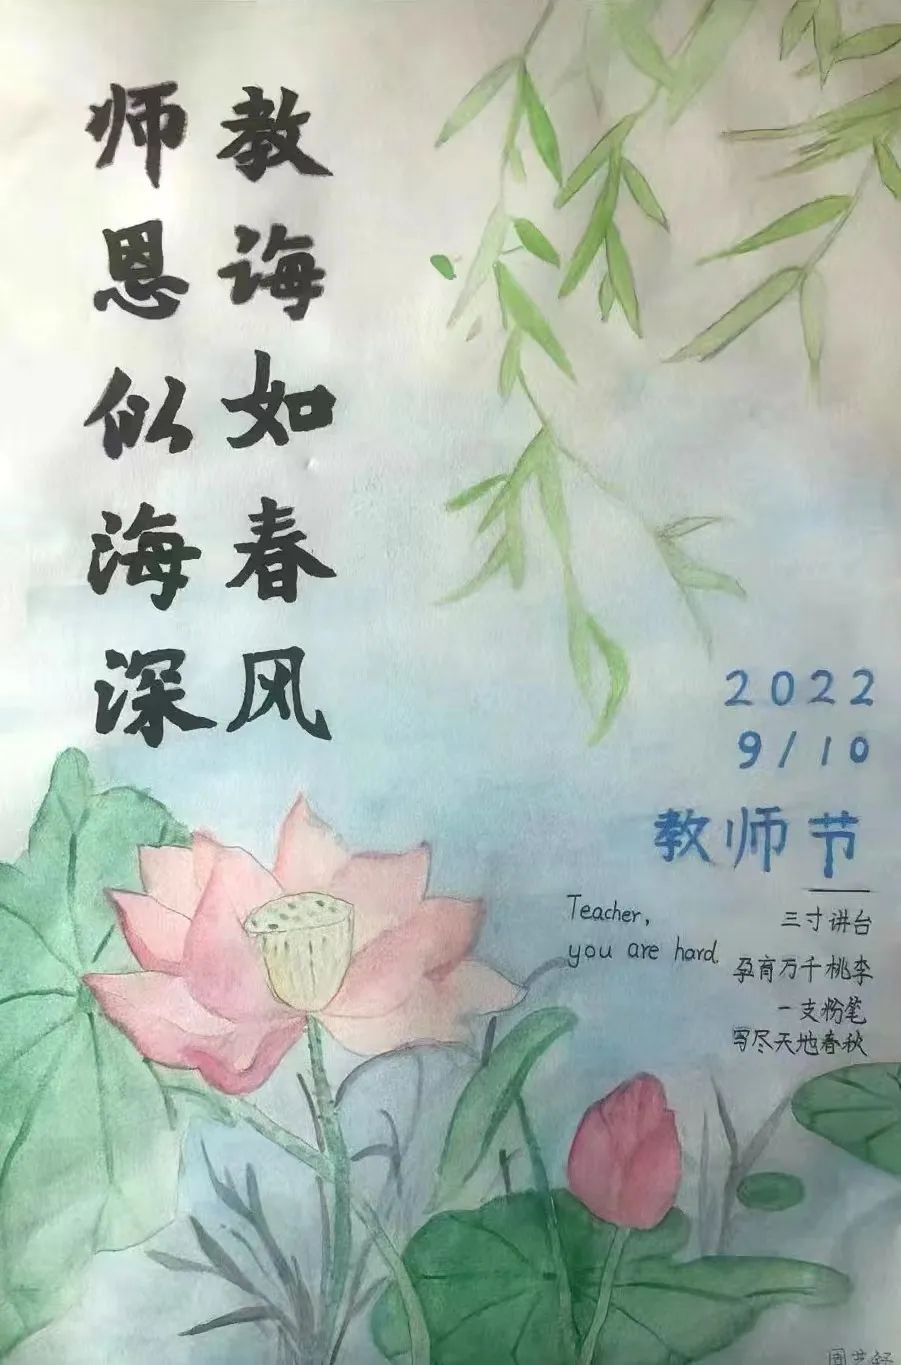 教诲如春风
师恩似海深
2022
9/10
教师节
Teacher,
you are hard.
三寸讲台
孕育万千桃李
一支粉笔
写尽天地春秋